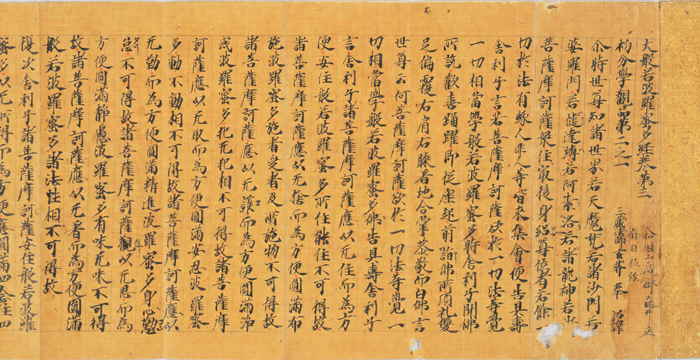 大般若波羅蜜多經卷第三
初分學觀品第二之一
三藏法師玄奘奉 詔譯
尒時世尊知諸世界若天魔梵若諸沙門若
婆羅門若健達縛若阿素洛若諸龍神若諸
菩薩摩訶薩住最後身紹尊位者若餘一
切於法有緣人非人等皆來集會便告具壽
舍利子言若菩薩摩訶薩欲於一切法等覺
一切相當學般若波羅蜜多時舍利子聞佛
所說歡喜踊躍即從座起前詣佛所頂礼雙
足偏覆右肩右膝着地合掌恭敬而白佛言
世尊云何菩薩摩訶薩欲於一切法等覺一
切相當學般若波羅蜜多佛告具壽舍利子
言舍利子諸菩薩摩訶薩應以无住而為方
便安住般若波羅蜜多所住能住不可得故
諸菩薩摩訶薩應以无捨而為方便圓滿布
施波羅蜜多施者受者及所施物不可得故
諸菩薩摩訶薩應以无護而為方便圓滿淨
戒波羅蜜多犯无犯相不可得故諸菩薩摩
訶薩應以无取而為方便圓滿安忍波羅蜜
多動不動相不可得故諸菩薩摩訶薩應以
无勤而為方便圓滿精進波羅蜜多身心勤
怠不可得故諸菩薩摩訶薩應以无思而為
方便圓滿靜慮波羅蜜多有味无味不可得
故諸菩薩摩訶薩應以无著而為方便圓滿
般若波羅蜜多諸法性相不可得故
復次舍利子諸菩薩摩訶薩安住般若波羅
蜜多以无所得而為方便應圓滿四念住四